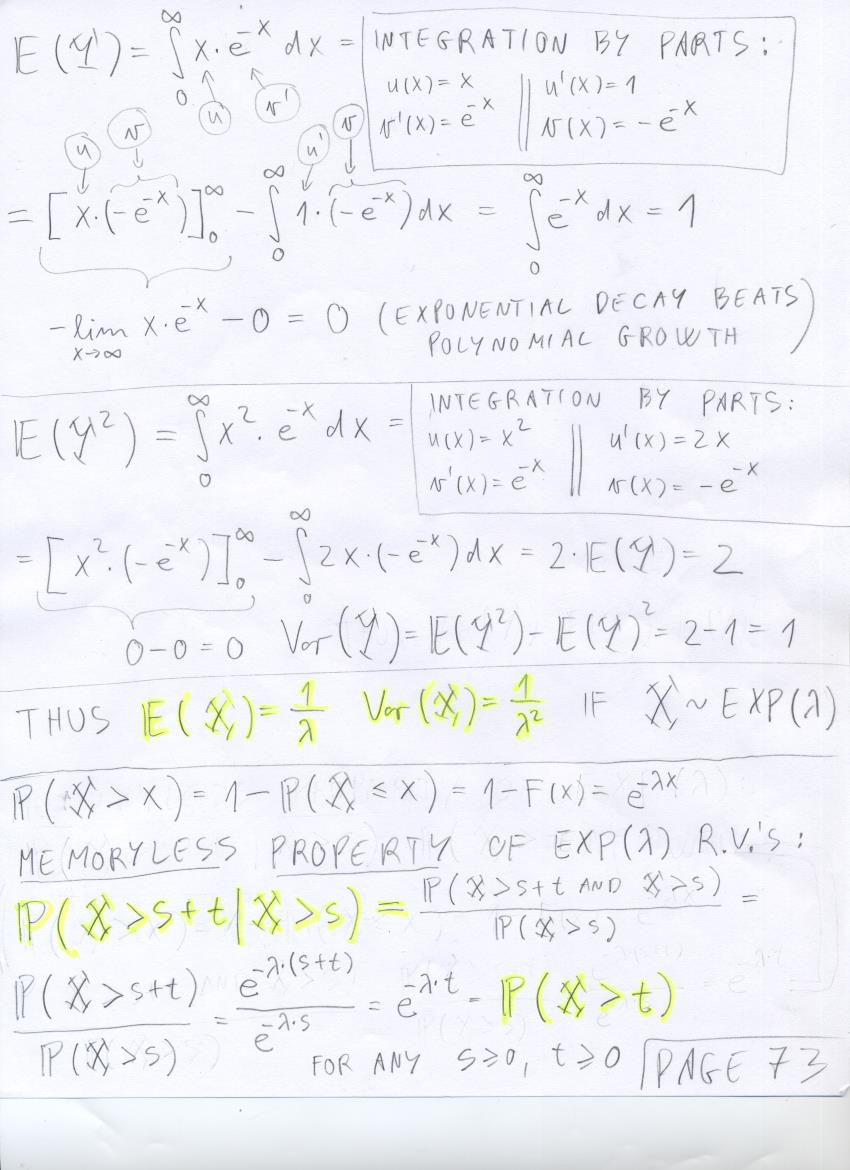 𝔼(Y) = ∫₀^∞ x·e^{-x} dx = INTEGRATION BY PARTS:
u(x)=x || u'(x)=1
v'(x)=e^{-x} || v(x)=-e^{-x}
u v'
u v u' v
= [x·(-e^{-x})]₀^∞ - ∫₀^∞ 1·(-e^{-x})dx = ∫₀^∞ e^{-x} dx = 1
-lim_{x→∞} x·e^{-x} - 0 = 0 (EXPONENTIAL DECAY BEATS
POLYNOMIAL GROWTH)
𝔼(Y²) = ∫₀^∞ x²·e^{-x} dx = INTEGRATION BY PARTS:
u(x)=x² || u'(x)=2x
v'(x)=e^{-x} || v(x)=-e^{-x}
= [x²·(-e^{-x})]₀^∞ - ∫₀^∞ 2x·(-e^{-x})dx = 2·𝔼(Y)=2
0-0=0 Var(Y)=𝔼(Y²)-𝔼(Y)²=2-1=1
THUS 𝔼(X)=1/λ Var(X)=1/λ² IF X~EXP(λ)
ℙ(X>x)=1-ℙ(X≤x)=1-F(x)=e^{-λx}
MEMORYLESS PROPERTY OF EXP(λ) R.V.'s:
ℙ(X>s+t|X>s)= ℙ(X>s+t AND X>s)/ℙ(X>s) =
ℙ(X>s+t)/ℙ(X>s) = e^{-λ·(s+t)}/e^{-λ·s} = e^{-λ·t} = ℙ(X>t)
FOR ANY s≥0, t≥0 PAGE 73